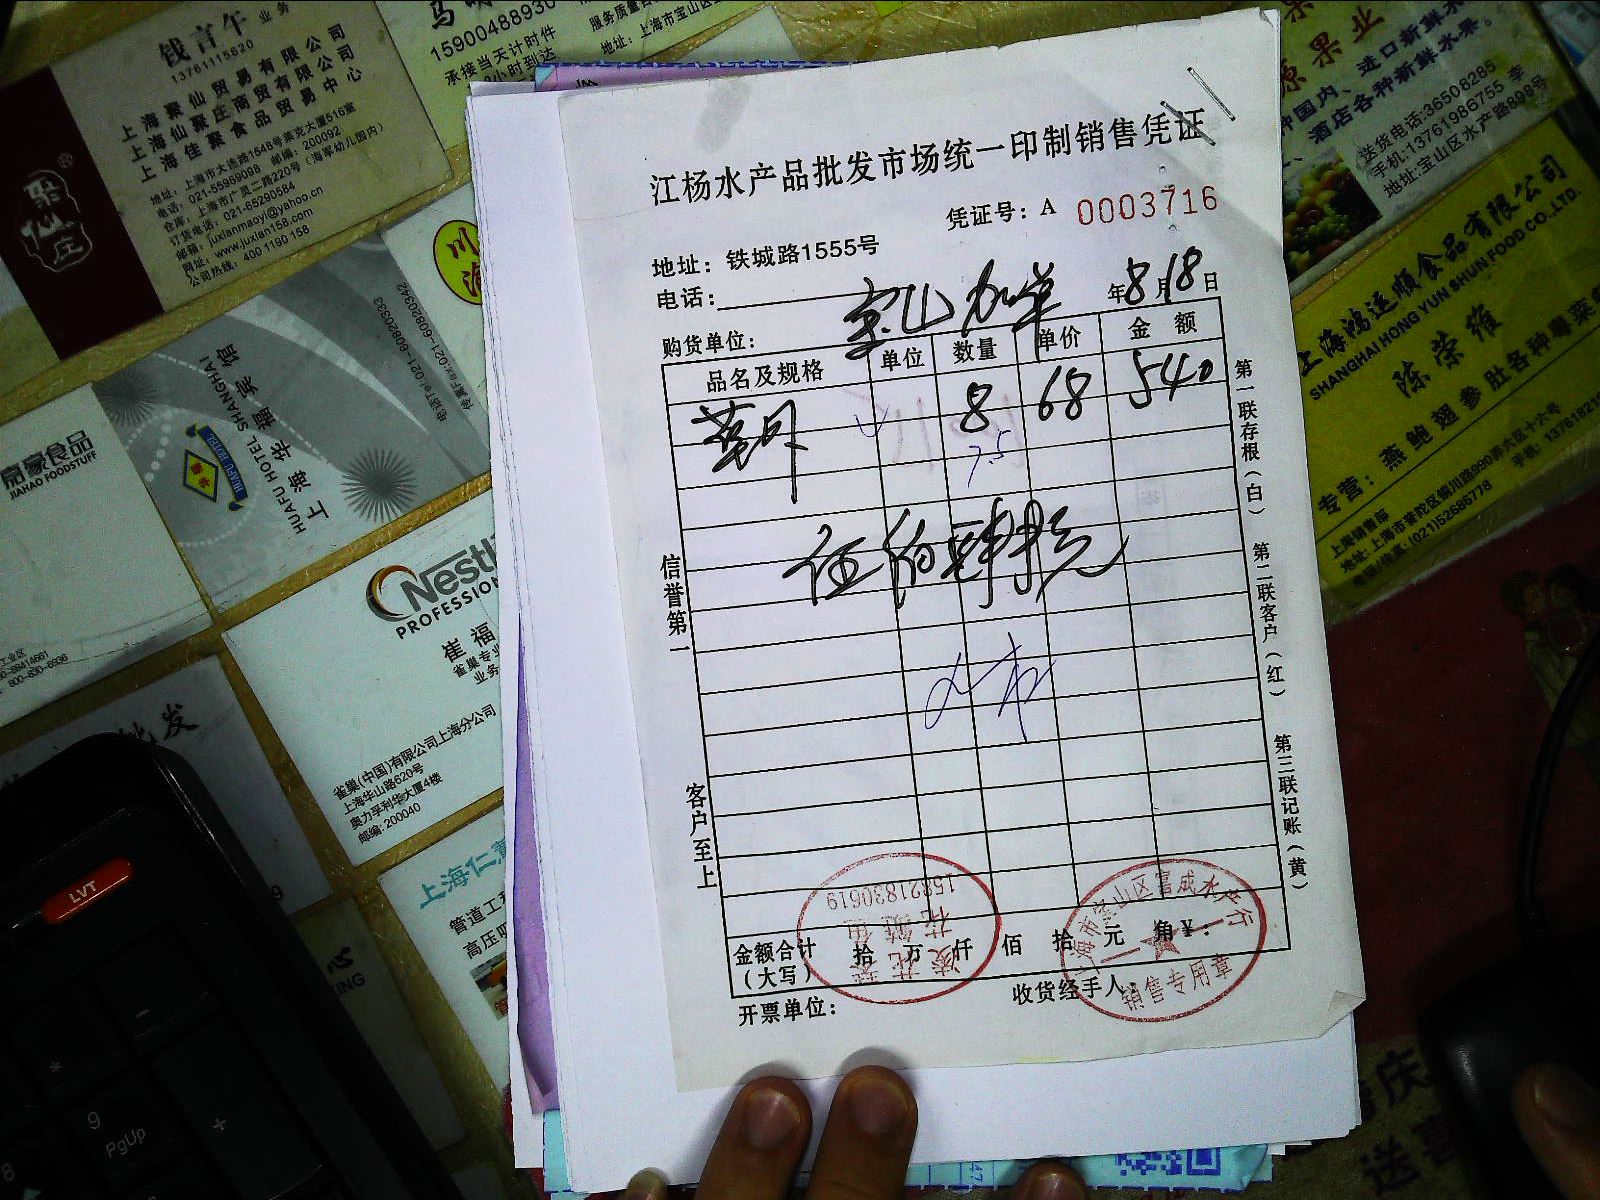 江杨水产品批发市场统一印制销售凭证
凭证号：A 0003716
地址：铁城路1555号
电话：
年8月18日
购货单位：宝山
品名及规格 单位 数量 单价 金额
8 68 540
7.5
伍佰肆拾元
信誉第一
客户至上
第一联存根（白）
第二联客户（红）
第三联记账（黄）
金额合计（大写） 拾 万 仟 佰 拾 元 角 ¥：
开票单位：
收货经手人：
15821830619
上海市宝山区富成水产行
销售专用章
钱言午 业务
13761115620
上海聚仙贸易有限公司
上海仙聚庄商贸有限公司
上海佳聚食品贸易中心
地址：上海市大连路1548号莱克大厦516室
电话：021-55969098 邮编：200092
仓库：上海市广灵二路220号（海军幼儿园内）
订货电话：021-65290584
邮箱：juxianmaoyi@yahoo.cn
网址：www.juxian158.com
公司热线：400 1190 158
聚仙庄
1590048893
承接当天计时件
小时到达
服务质量
地址：上海市宝山区
川
海
上海华福宾馆
HUAFU HOTEL SHANGHAI
HUAFU HOTEL
嘉豪食品
JIAHAO FOODSTUFF
Nestl
PROFESSION
崔福
雀巢专业
业务
雀巢(中国)有限公司上海分公司
上海华山路620号
奥力孚利华大厦4楼
邮编: 200040
批发
上海仁
管道工
高压
果业
国内、进口新鲜水
酒店各种新鲜水果。
送货电话:36508285
手机:13761986755 李
地址:宝山区水产路898号
上海鸿运顺食品有限公司
SHANGHAI HONG YUN SHUN FOOD CO.,LTD.
陈荣维
专营：燕 鲍 翅 参 肚各种粤菜
上海销售部
地址: 上海市普陀区铜川路890弄六区十六号
电话/传真: (021)52686778
手机: 1376182
LVT
9
PgUp
8
*
-
+
庆
送喜